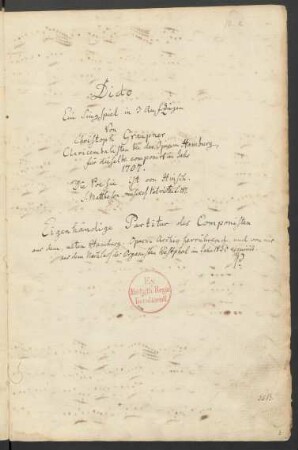 Dido
Ein Singspiel in 3 Aufzügen
von
Christoph Graupner
Clavicembalisten bei der Opera Hamburg,
für dieselbe componirt im Jahr
1707.
Die Poesie ist von Hinsch.
Mattheson
Eigenhändige Partitur des Componisten
aus dem alten Hamburg. Opern Archiv herrührend, und von mir
aus dem Nachlass des Organisten Westphal in
Ex
Biblioth. Regia
Berolinensi.